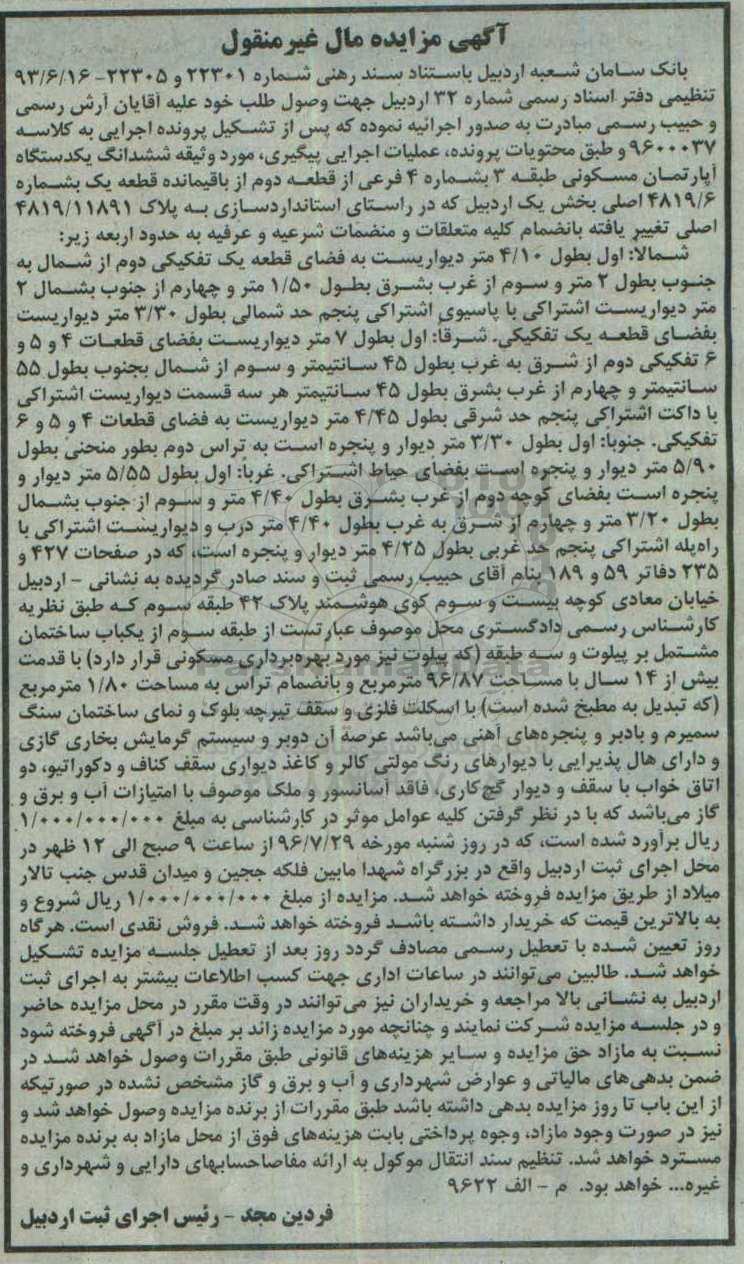 آگهی مزایده مال غیرمنقول
بانک سامان شعبه اردبیل باستناد سند رهنی شماره ۲۲۳۰۱ و ۲۲۳۰۵- ۹۳/۶/۱۶
تنظیمی دفتر اسناد رسمی شماره ۳۲ اردبیل جهت وصول طلب خود علیه آقایان آرش رسمی
و حبیب رسمی مبادرت به صدور اجرائیه نموده که پس از تشکیل پرونده اجرایی به کلاسه
۹۶۰۰۰۳۷ و طبق محتویات پرونده، عملیات اجرایی پیگیری، مورد وثیقه ششدانگ یکدستگاه
آپارتمان مسکونی طبقه ۳ بشماره ۴ فرعی از قطعه دوم از باقیمانده قطعه یک بشماره
۴۸۱۹/۶ اصلی بخش یک اردبیل که در راستای استانداردسازی به پلاک ۴۸۱۹/۱۱۸۹۱
اصلی تغییر یافته بانضمام کلیه متعلقات و منضمات شرعیه و عرفیه به حدود اربعه زیر:
شمالا: اول بطول ۴/۱۰ متر دیواریست به فضای قطعه یک تفکیکی دوم از شمال به
جنوب بطول ۲ متر و سوم از غرب بشرق بطول ۱/۵۰ متر و چهارم از جنوب بشمال ۲
متر دیواریست اشتراکی با پاسیوی اشتراکی پنجم حد شمالی بطول ۳/۳۰ متر دیواریست
بفضای قطعه یک تفکیکی. شرقا: اول بطول ۷ متر دیواریست بفضای قطعات ۴ و ۵ و
۶ تفکیکی دوم از شرق به غرب بطول ۴۵ سانتیمتر و سوم از شمال بجنوب بطول ۵۵
سانتیمتر و چهارم از غرب بشرق بطول ۴۵ سانتیمتر هر سه قسمت دیواریست اشتراکی
با داکت اشتراکی پنجم حد شرقی بطول ۴/۴۵ متر دیواریست به فضای قطعات ۴ و ۵ و ۶
تفکیکی. جنوبا: اول بطول ۳/۳۰ متر دیوار و پنجره است به تراس دوم بطور منحنی بطول
۵/۹۰ متر دیوار و پنجره است بفضای حیاط اشتراکی. غربا: اول بطول ۵/۵۵ متر دیوار و
پنجره است بفضای کوچه دوم از غرب بشرق بطول ۴/۴۰ متر و سوم از جنوب بشمال
بطول ۳/۲۰ متر و چهارم از شرق به غرب بطول ۴/۴۰ متر درب و دیواریست اشتراکی با
راه‌پله اشتراکی پنجم حد غربی بطول ۴/۲۵ متر دیوار و پنجره است، که در صفحات ۴۲۷ و
۲۳۵ دفاتر ۵۹ و ۱۸۹ بنام آقای حبیب رسمی ثبت و سند صادر گردیده به نشانی - اردبیل
خیابان معادی کوچه بیست و سوم کوی هوشمند پلاک ۴۲ طبقه سوم که طبق نظریه
کارشناس رسمی دادگستری محل موصوف عبارتست از طبقه سوم از یکباب ساختمان
مشتمل بر پیلوت و سه طبقه (که پیلوت نیز مورد بهره‌برداری مسکونی قرار دارد) با قدمت
بیش از ۱۴ سال با مساحت ۹۶/۸۷ مترمربع و بانضمام تراس به مساحت ۱/۸۰ مترمربع
(که تبدیل به مطبخ شده است) با اسکلت فلزی و سقف تیرچه بلوک و نمای ساختمان سنگ
سمیرم و بادبر و پنجره‌های آهنی می‌باشد عرصه آن دوبر و سیستم گرمایش بخاری گازی
و دارای هال پذیرایی با دیوارهای رنگ مولتی کالر و کاغذ دیواری سقف کناف و دکوراتیو، دو
اتاق خواب با سقف و دیوار گچ‌کاری، فاقد آسانسور و ملک موصوف با امتیازات آب و برق و
گاز می‌باشد که با در نظر گرفتن کلیه عوامل موثر در کارشناسی به مبلغ ۱/۰۰۰/۰۰۰/۰۰۰
ریال برآورد شده است، که در روز شنبه مورخه ۹۶/۷/۲۹ از ساعت ۹ صبح الی ۱۲ ظهر در
محل اجرای ثبت اردبیل واقع در بزرگراه شهدا مابین فلکه ججین و میدان قدس جنب تالار
میلاد از طریق مزایده فروخته خواهد شد. مزایده از مبلغ ۱/۰۰۰/۰۰۰/۰۰۰ ریال شروع و
به بالاترین قیمت که خریدار داشته باشد فروخته خواهد شد. فروش نقدی است. هرگاه
روز تعیین شده با تعطیل رسمی مصادف گردد روز بعد از تعطیل جلسه مزایده تشکیل
خواهد شد. طالبین می‌توانند در ساعات اداری جهت کسب اطلاعات بیشتر به اجرای ثبت
اردبیل به نشانی بالا مراجعه و خریداران نیز می‌توانند در وقت مقرر در محل مزایده حاضر
و در جلسه مزایده شرکت نمایند و چنانچه مورد مزایده زائد بر مبلغ در آگهی فروخته شود
نسبت به مازاد حق مزایده و سایر هزینه‌های قانونی طبق مقررات وصول خواهد شد در
ضمن بدهی‌های مالیاتی و عوارض شهرداری و آب و برق و گاز مشخص نشده در صورتیکه
از این باب تا روز مزایده بدهی داشته باشد طبق مقررات از برنده مزایده وصول خواهد شد و
نیز در صورت وجود مازاد، وجوه پرداختی بابت هزینه‌های فوق از محل مازاد به برنده مزایده
مسترد خواهد شد. تنظیم سند انتقال موکول به ارائه مفاصاحسابهای دارایی و شهرداری و
غیره... خواهد بود. م - الف ۹۶۲۲
فردین مجد - رئیس اجرای ثبت اردبیل